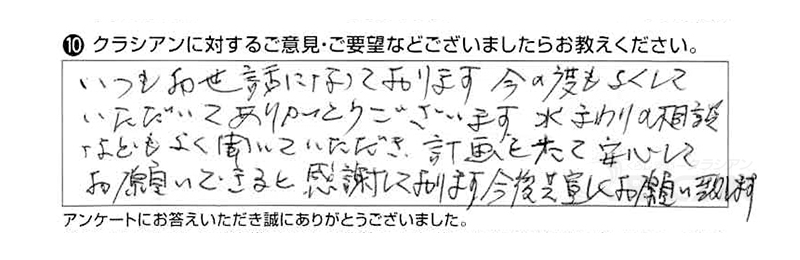 ⑩ クラシアンに対するご意見・ご要望などございましたらお教えください。
いつもお世話になっております 今の度もよくして
いただいてありがとうございます 水まわりの相談
などもよく聞いていただき、計画を立て安心して
お願いできると感謝しております今後共宜しくお願い致します
アンケートにお答えいただき誠にありがとうございました。
クラシアン